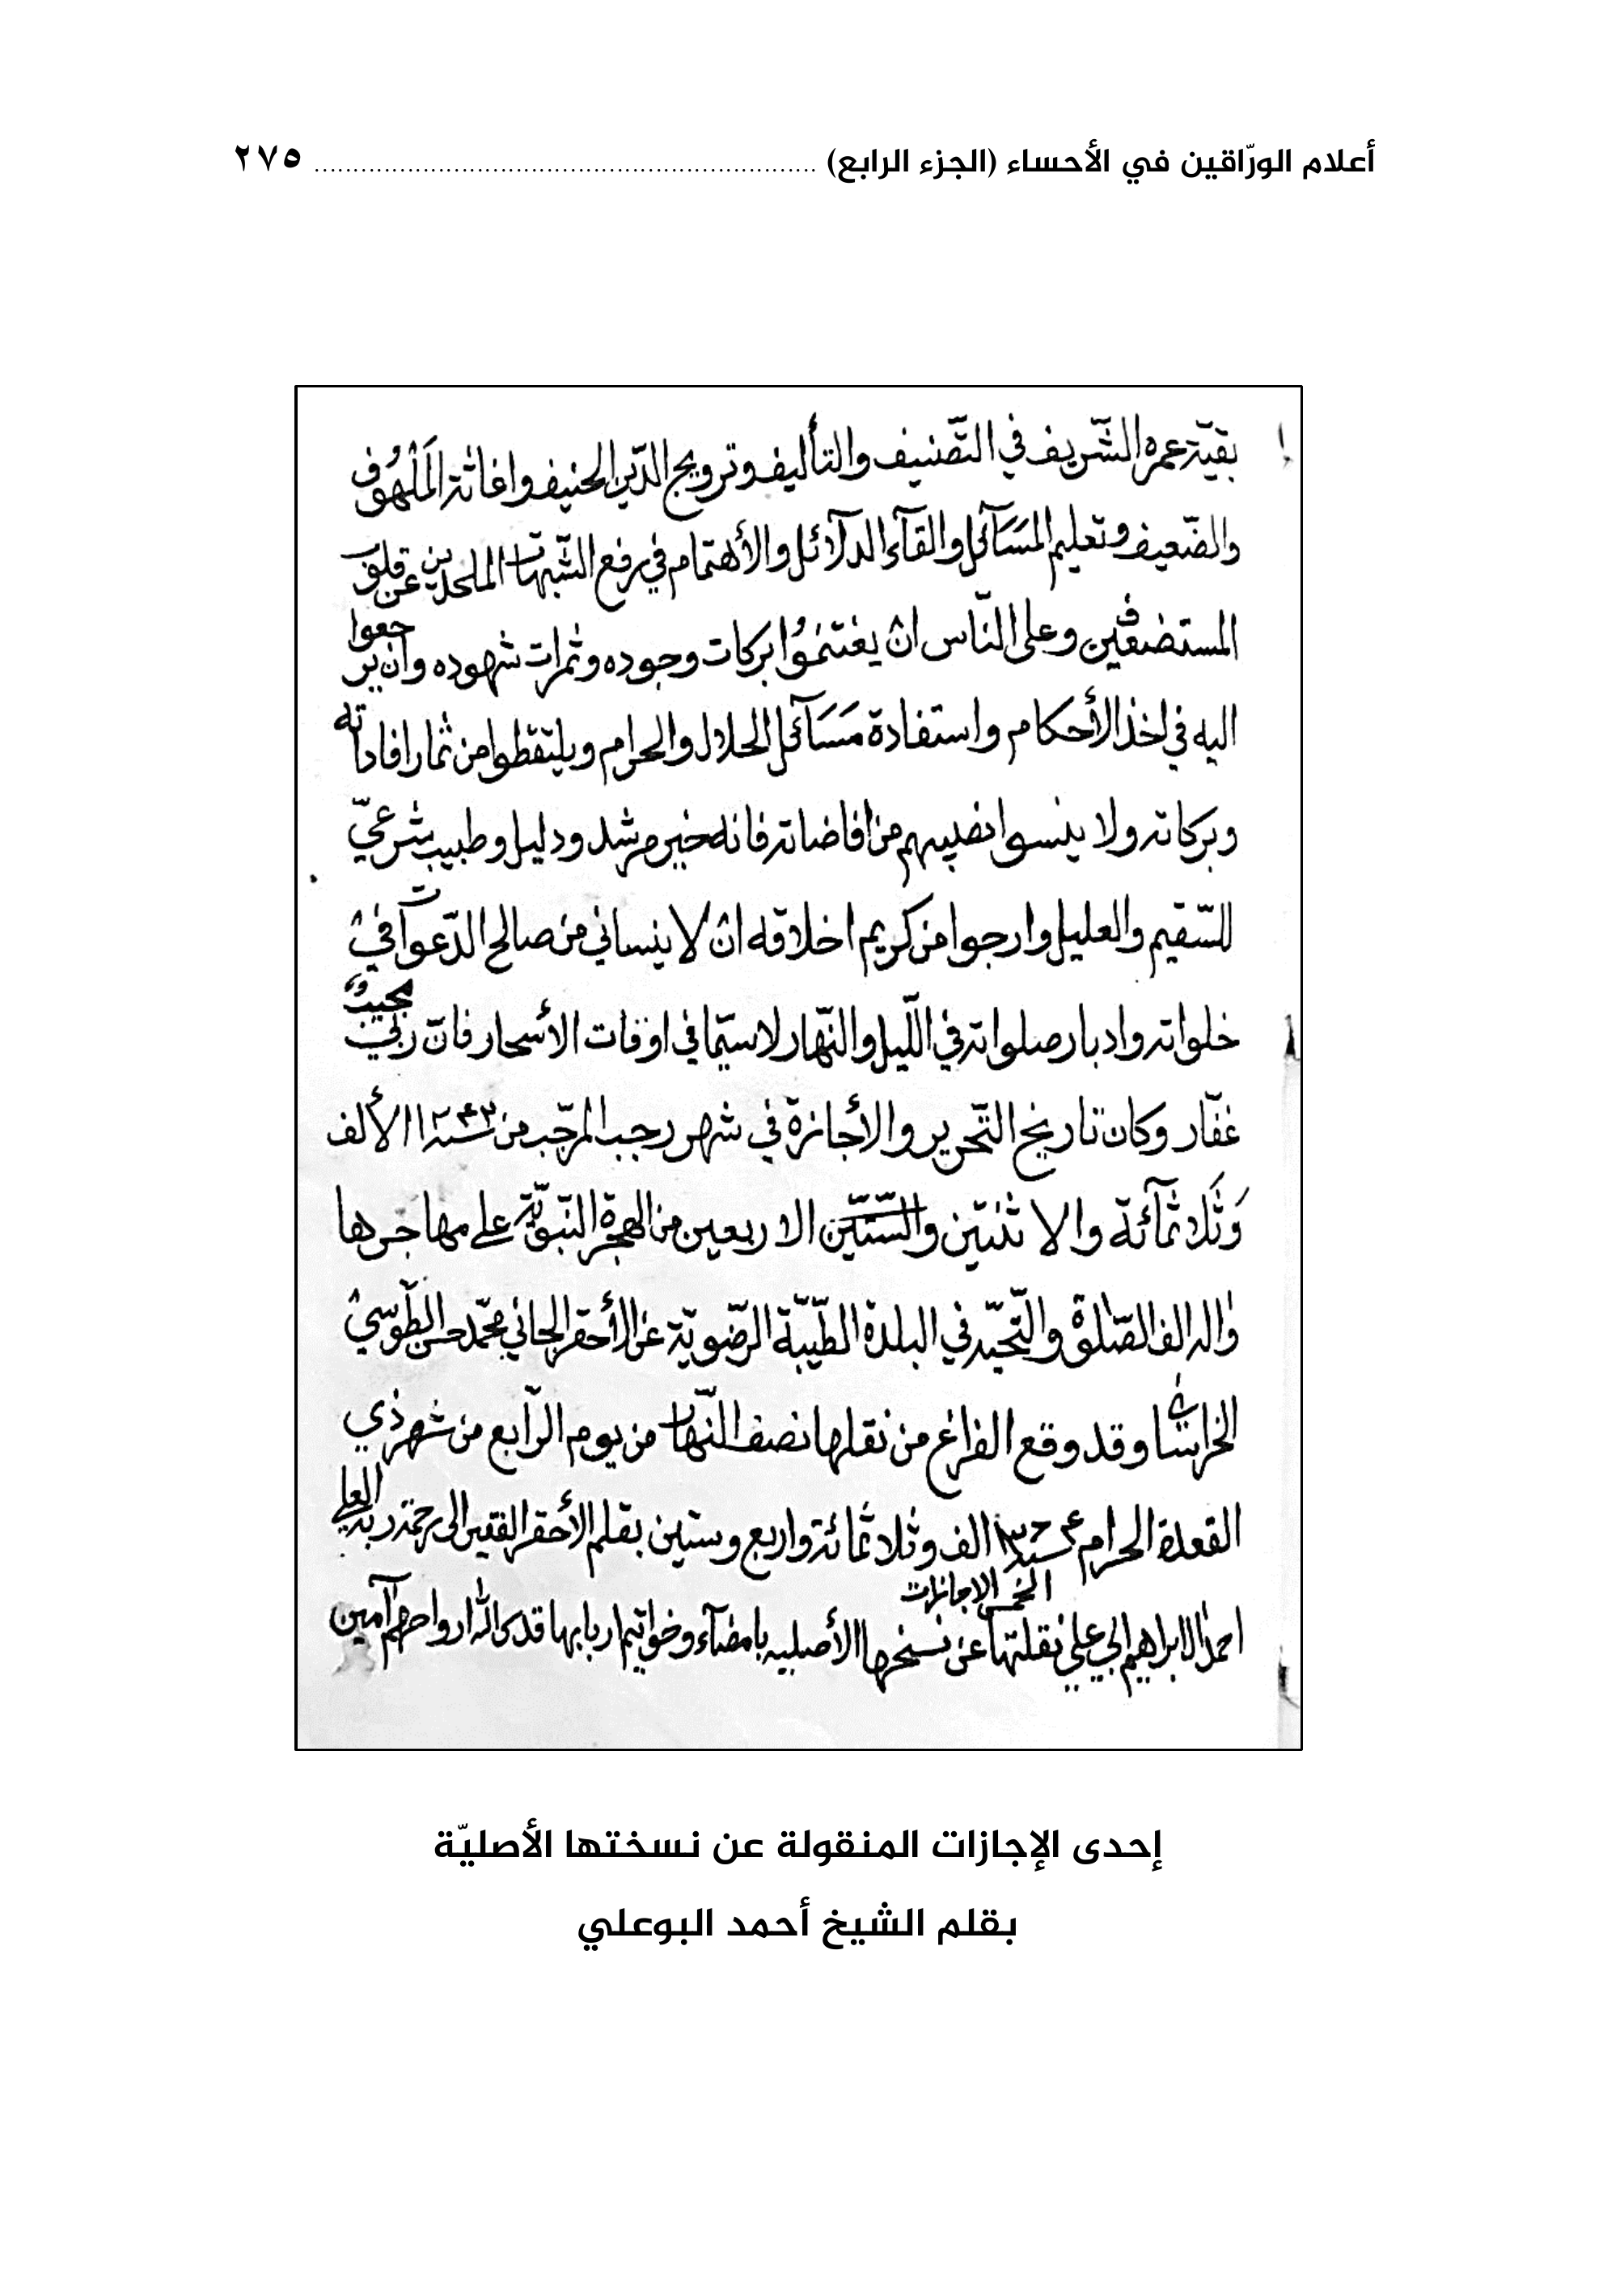 أعلام الورّاقين في الأحساء (الجزء الرابع) ............................................................... ٢٧٥
بقيّة عمره الشّريف في التّصنيف والتأليف وترويج الدّين الحنيف واغاثة المَلْهُوف
والضّعيف وتعليم المَسَآئل والقآء الدلآئل والأهتمام في رفع الشّبهات الملحدين عن قلوب
المستضعفين وعلى النّاس ان يغتنمُوا بركات وجوده وثمرات شهوده وان يرجعوا
اليه في اخذ الأحكام واستفادة مَسَآئل الحلال والحرام ويلتقطوا من ثمار افاداته
وبركاته ولا ينسوا نصيبهم من افاضاته فانه خير مرشد ودليل وطبيب شرعيّ
للسّقيم والعليل وارجوا من كريم اخلاقه ان لا ينساني من صالح الدّعوات في
خلواته وادبار صلواته في اللّيل والنّهار لاسيّما في اوقات الأسحار فانّ ربّي مجيب
غفّار وكان تاريخ التّحرير والأجازة في شهر رجب المرجّب من سنة الألف
وَثَلاثمآئة والاثنتين والستّين الاربعين من الهجرة النّبويّة على مهاجرها
واله الف الصّلوة والتّحيّة في البلدة الطّيّبة الرّضويّة عن الأحقر الجاني محمّد حسن الطّوسي
الخراساني وقد وقع الفراغ من نقلها نصف النّهار من يوم الرّابع من شهر ذي
القعدة الحرام سنة الف وثلاثمائة واربع وستين بقلم الأحقر الفقير الى رحمة ربّه العلي
احمد الابراهيم ابي علي نقلتها الاجازات الخمس عن نسخها الأصليه بامضآء وخواتيم اربابها قدس الله ارواحهم آمين
إحدى الإجازات المنقولة عن نسختها الأصليّة
بقلم الشيخ أحمد البوعلي